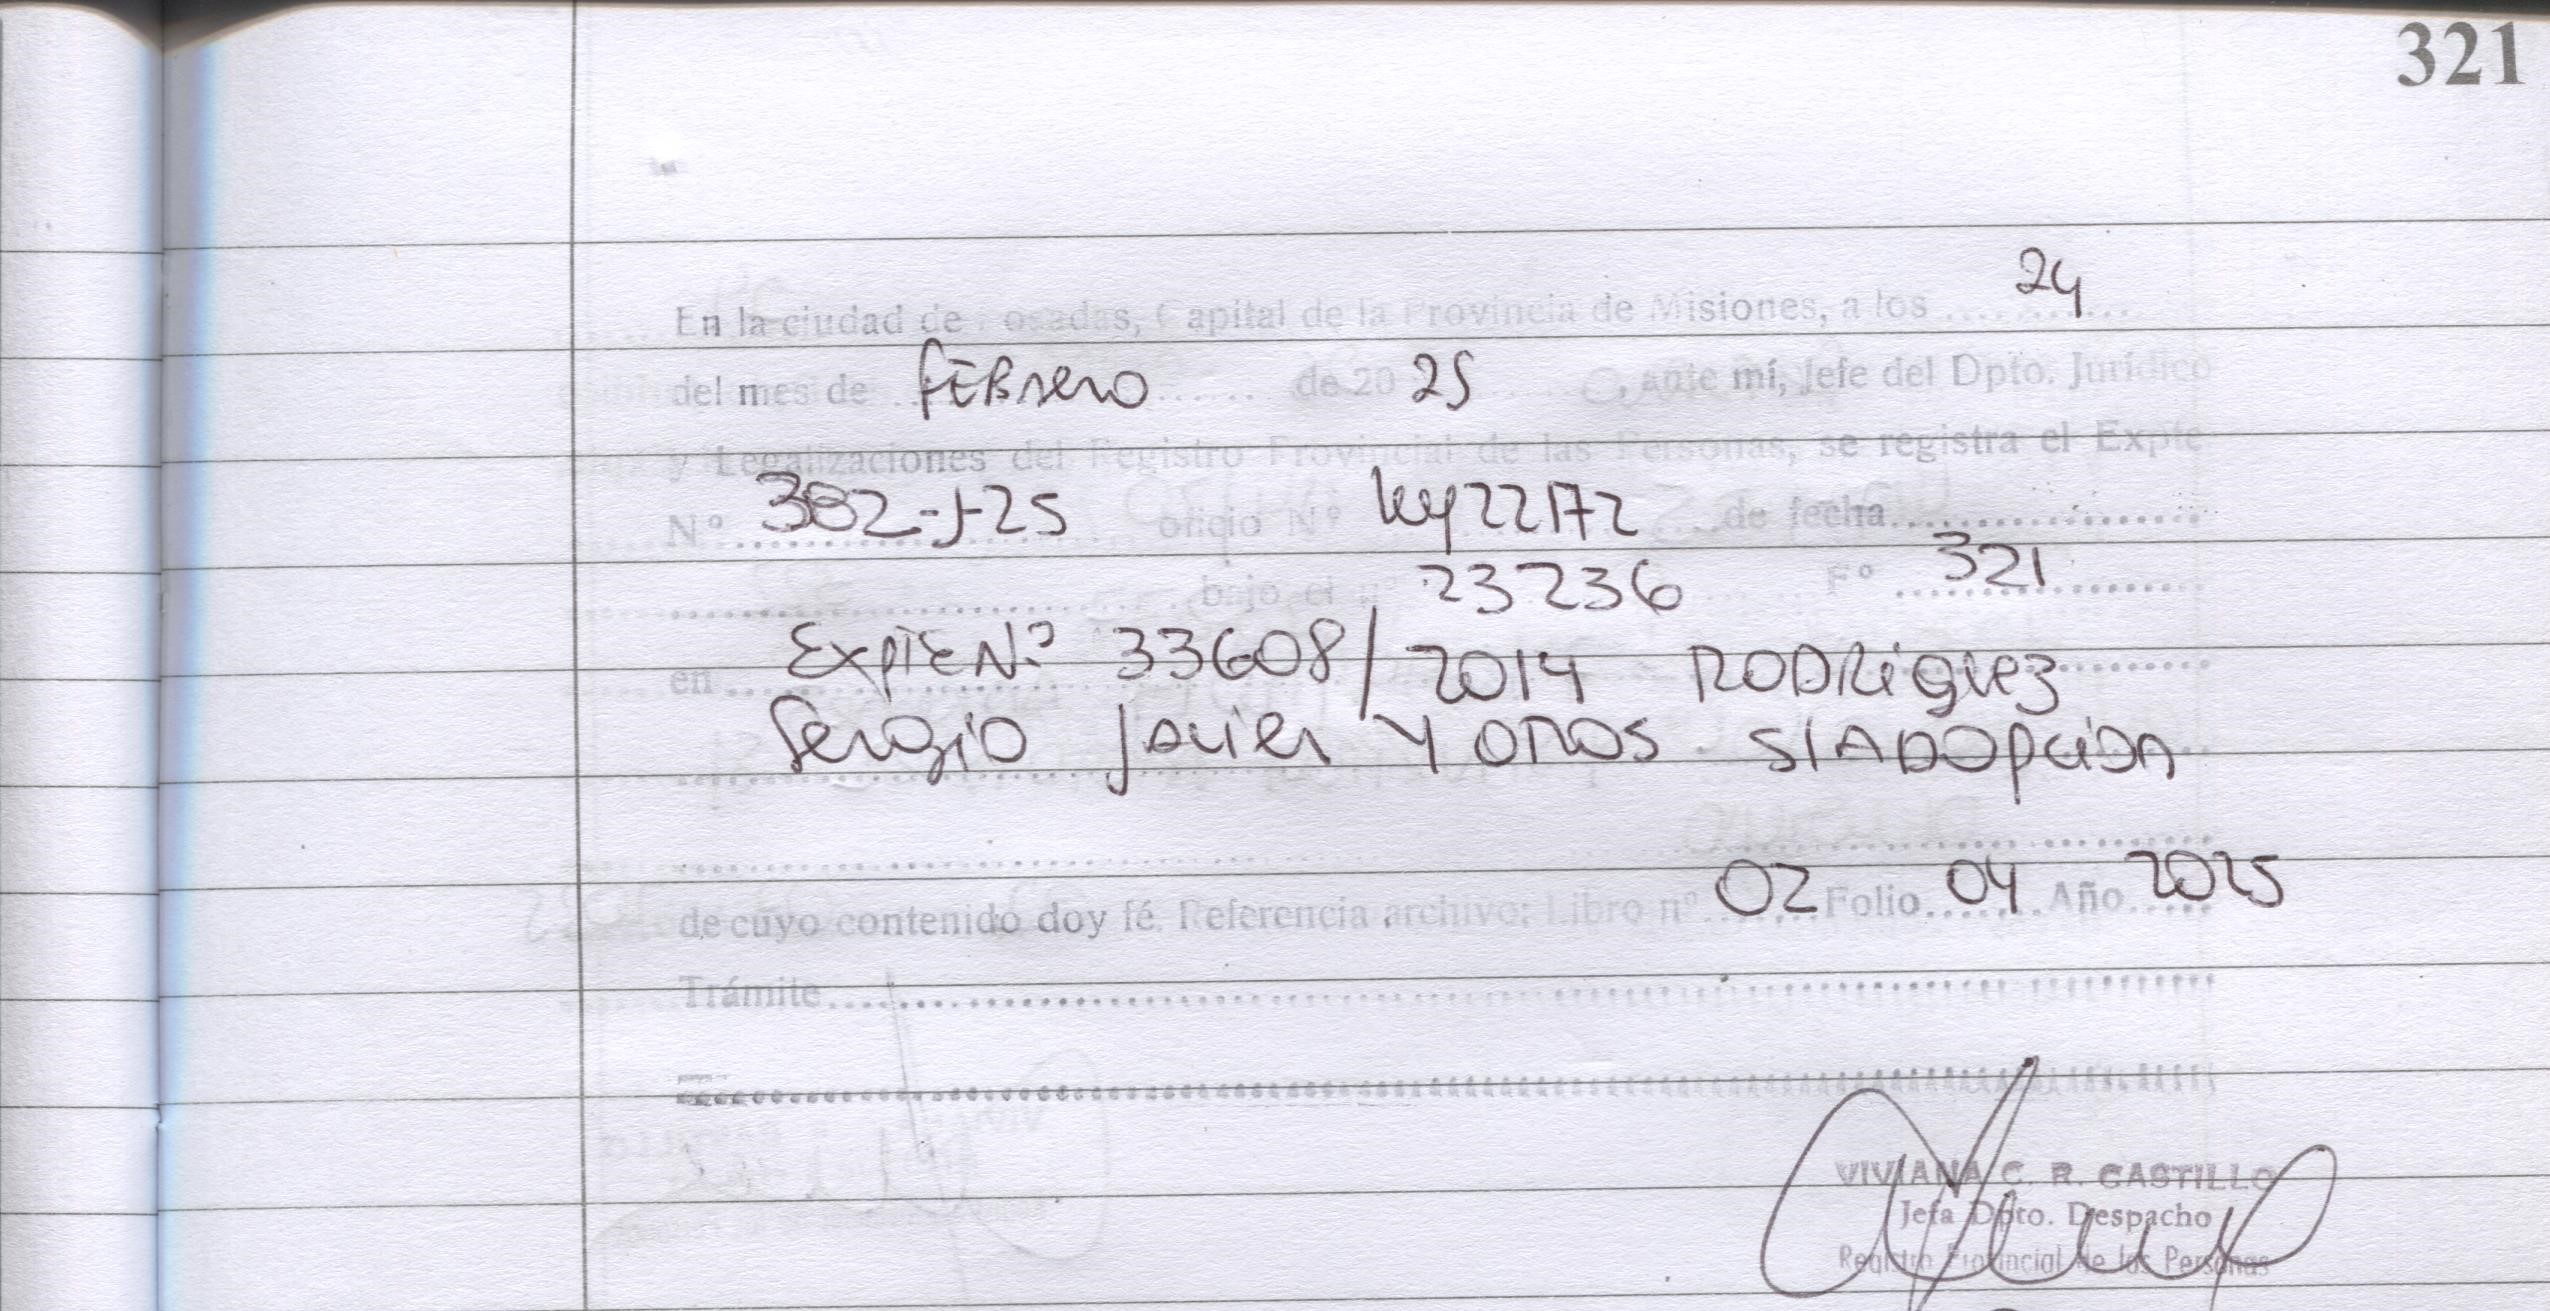 321
En la ciudad de Posadas, Capital de la Provincia de Misiones, a los 24
del mes de FEBrero de 20 25, ante mí, Jefe del Dpto. Jurídico
y Legalizaciones del Registro Provincial de las Personas, se registra el Expte
Nº 382-J-25 oficio Nº Ley 22172 de fecha
bajo el nº 23236 Fº 321
en ExpTE Nº 33608/2014 RODRiguez
Sergio Javier Y OTROS S/ADOPCiON
de cuyo contenido doy fé. Referencia archivo: Libro nº 02 Folio 04 Año 2025
Trámite
VIVIANA C. R. CASTILLO
Jefa Dpto. Despacho
Registro Provincial de las Personas